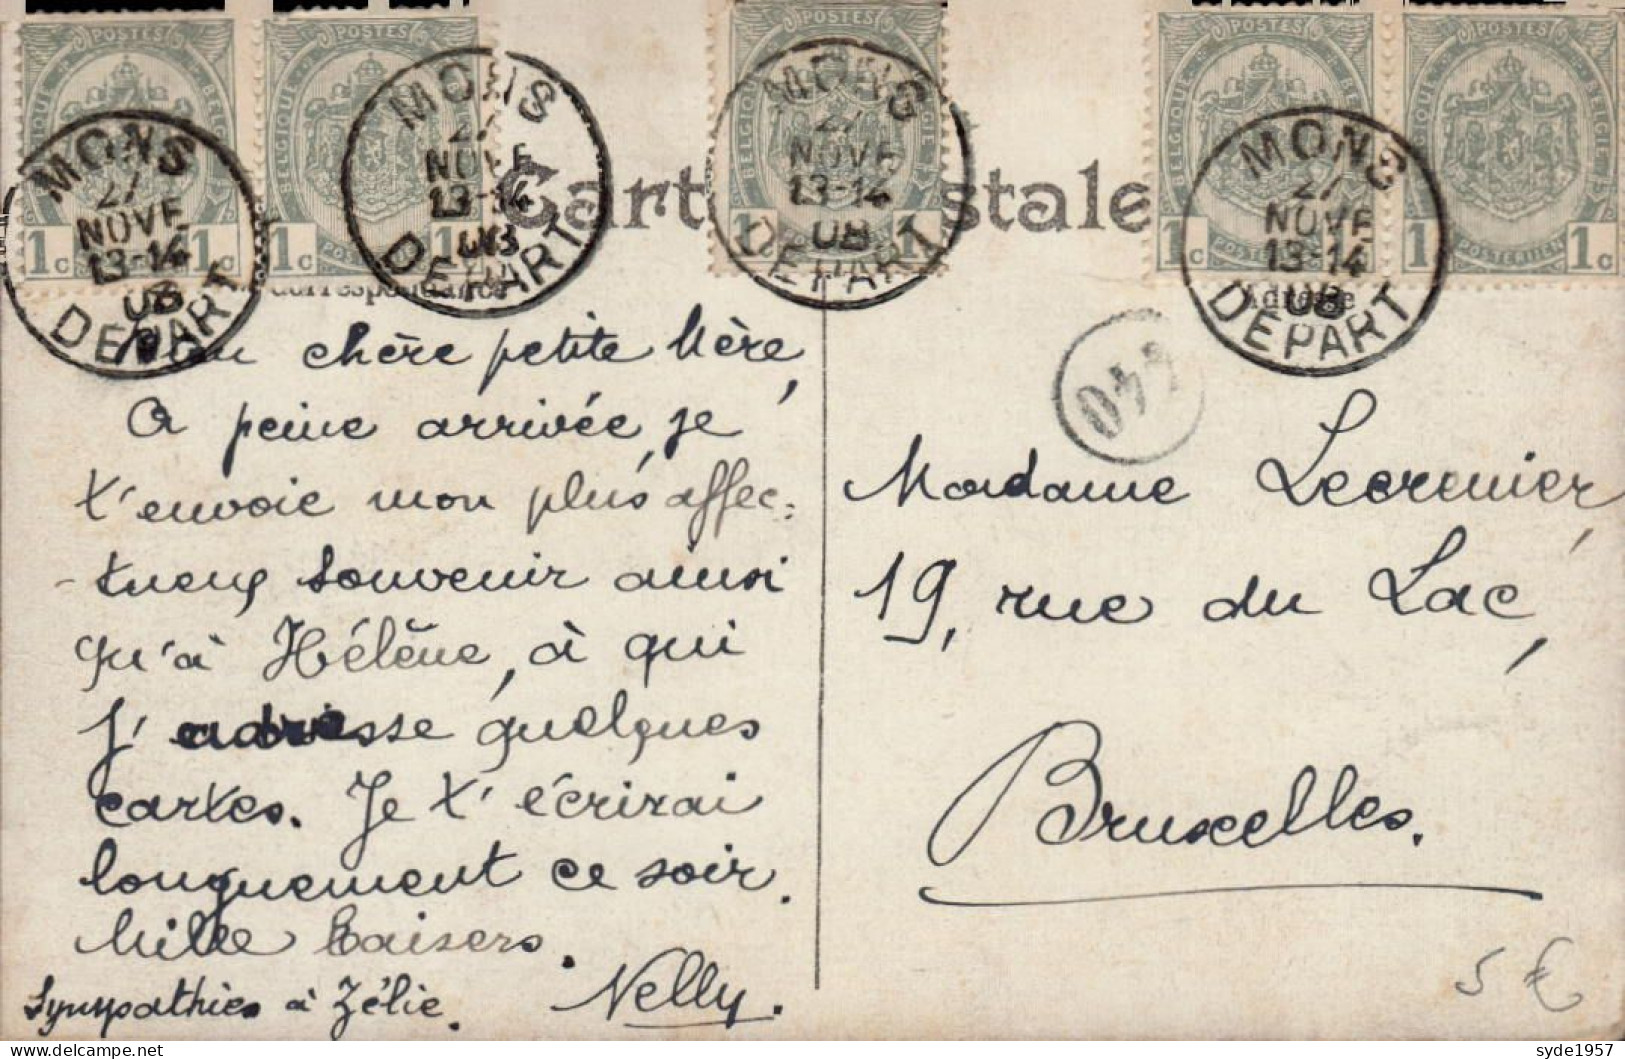 POSTES POSTES POSTES POSTES POSTES
BELGIQUE BELGIË BELGIQUE BELGIQUE BELGIË BELGIQUE BELGIË BELGIQUE BELGIË
1c 1c 1c 1 1 1 1c 1 1c
POSTERIJEN POSTERIJEN
MONS 27 NOVE 13-14 08 DEPART
MONS 27 NOVE 13-14 08 DEPART
MONS 27 NOVE 13-14 08 DEPART
MONS 27 NOVE 13-14 08 DEPART
Cart stale
Correspondance
Adresse
Ma chère petite Mère,
A peine arrivée, je
t'envoie mon plus affec=
-tueux souvenir ainsi
qu'à Hélène, à qui
j'adresse quelques
cartes. Je t'écrirai
longuement ce soir.
Mille baisers.
Nelly.
Sympathies à Zélie.
Madame Lecrenier,
19, rue du Lac,
Bruxelles.
5 €
syde1957